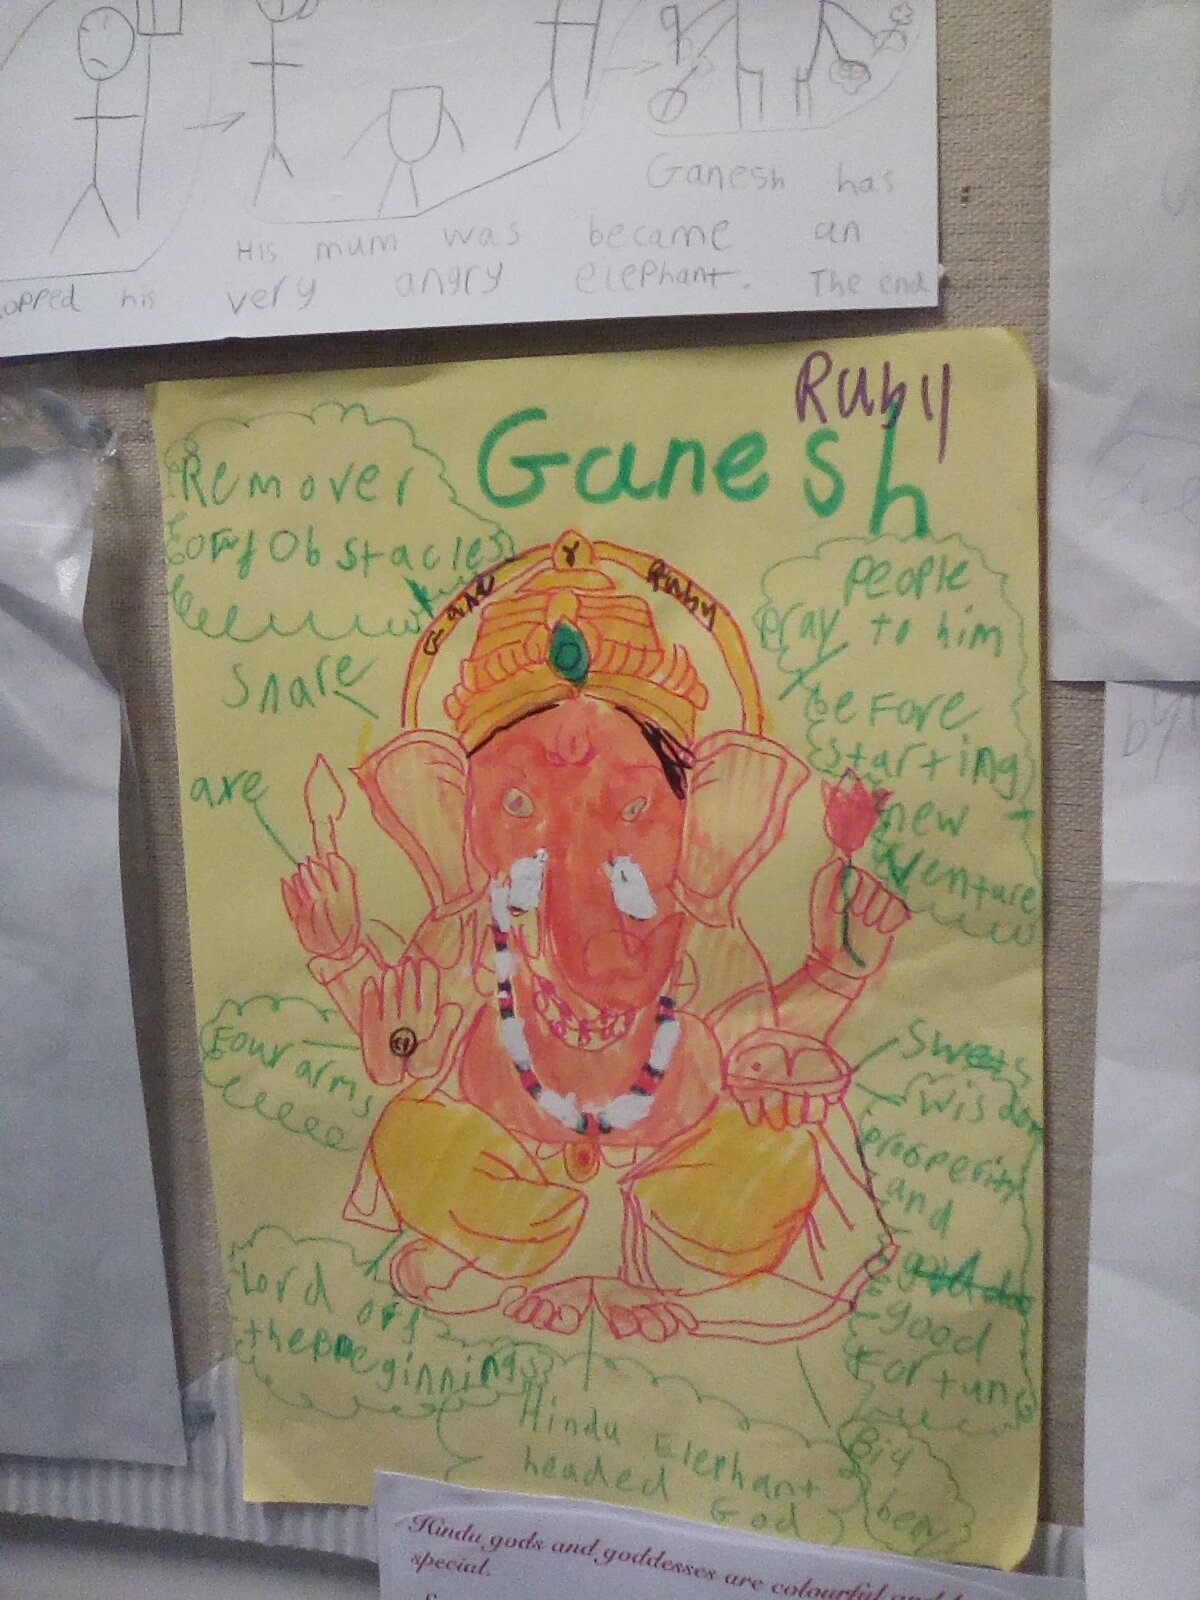 Ganesh has
His mum was became an
very angry elephant. The end
his
Ruby
Ganesh
Remover
of Obstacles
Ruby
Snare
axe
People
pray to him
before
starting
new
venture
Four arms
Sweets
Wisdom
prosperity
and
good
Fortune
Lord of
the Beginnings
Hindu Elephant
headed God
Big
Hindu gods and goddesses are colourful and
special.